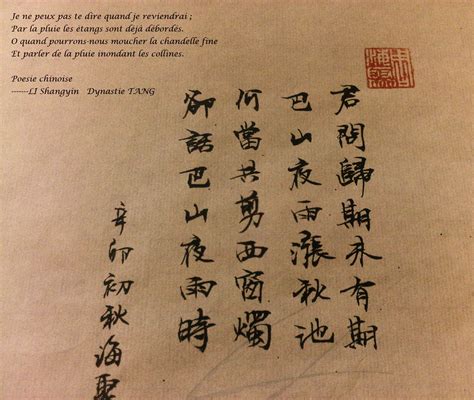 Je ne peux pas te dire quand je reviendrai ;
Par la pluie les étangs sont déjà débordés.
O quand pourrons-nous moucher la chandelle fine
Et parler de la pluie inondant les collines.
Poesie chinoise
-------LI Shangyin Dynastie TANG
君問歸期未有期
巴山夜雨漲秋池
何當共剪西窗燭
卻話巴山夜雨時
辛卯初秋海聚